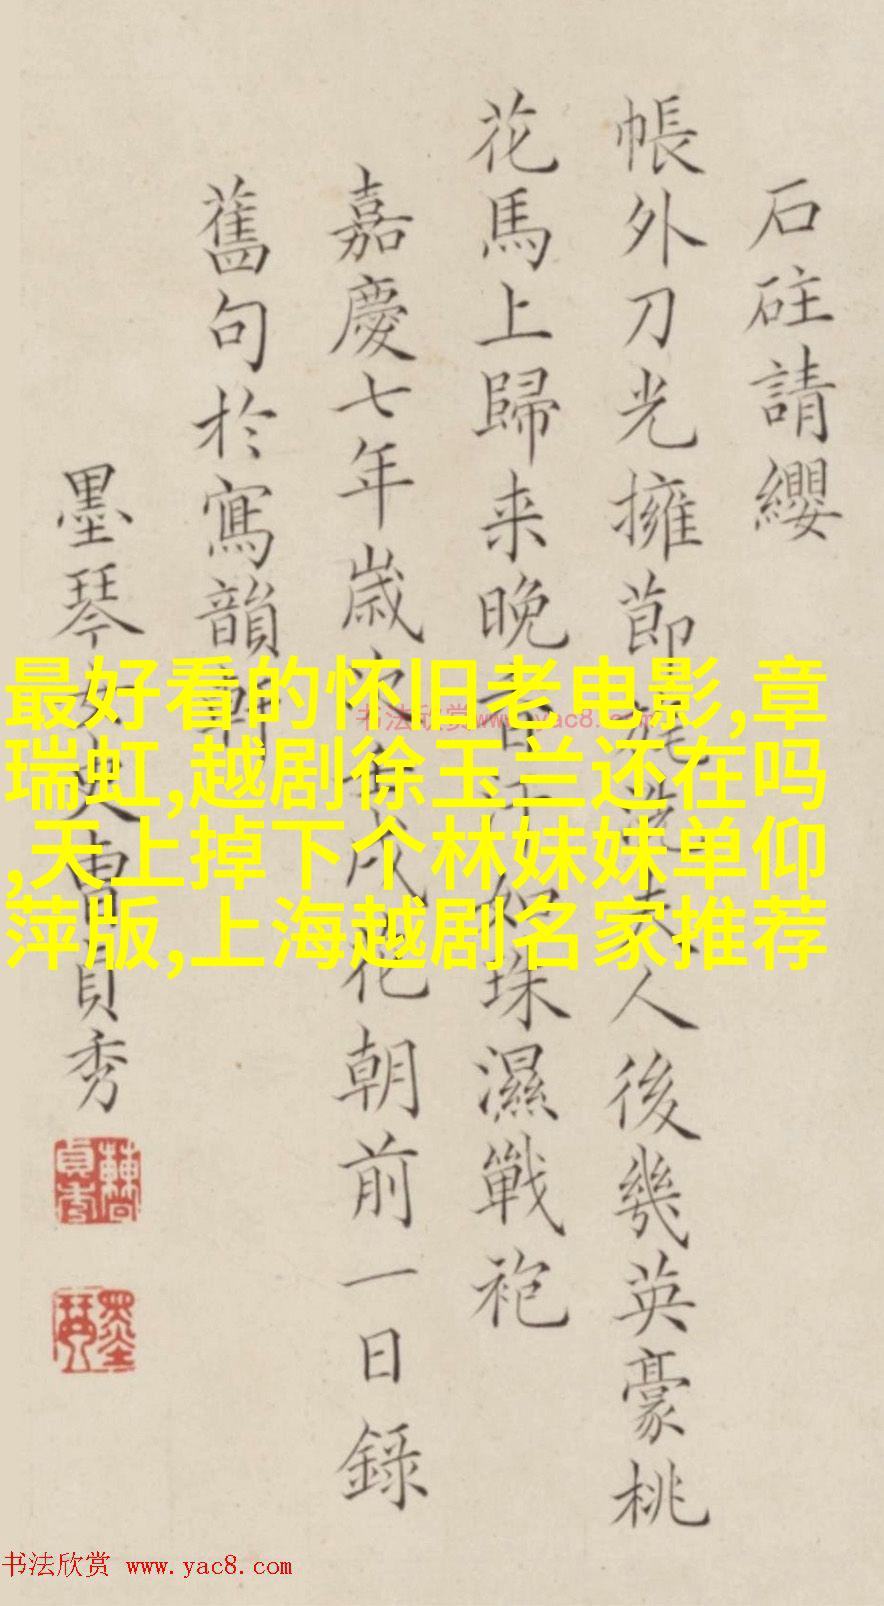 石砫請纓
帳外刀光擁莭旄夫人後幾英豪桃
花馬上歸来晚香汗如珠濕戰袍
嘉慶七年嵗次壬戌花朝前一日錄
舊句於寫韻軒
墨琴女史曹貞秀
墨琴
最好看的怀旧老电影,章
瑞虹,越剧徐玉兰还在吗
,天上掉下个林妹妹单仰
萍版,上海越剧名家推荐
书法欣赏www.yac8.com
书法欣赏 www.yac8.com